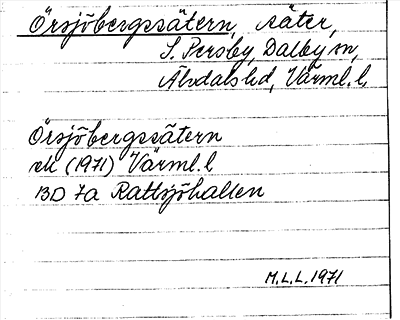 Örsjöbergssätern, säter,
S. Persby, Dalby sn,
Älvdals hd, Värml. l.
Örsjöbergssätern
ek (1971) Värml. l
13D 7a Rattsjöhallen
M.L.L. 1971